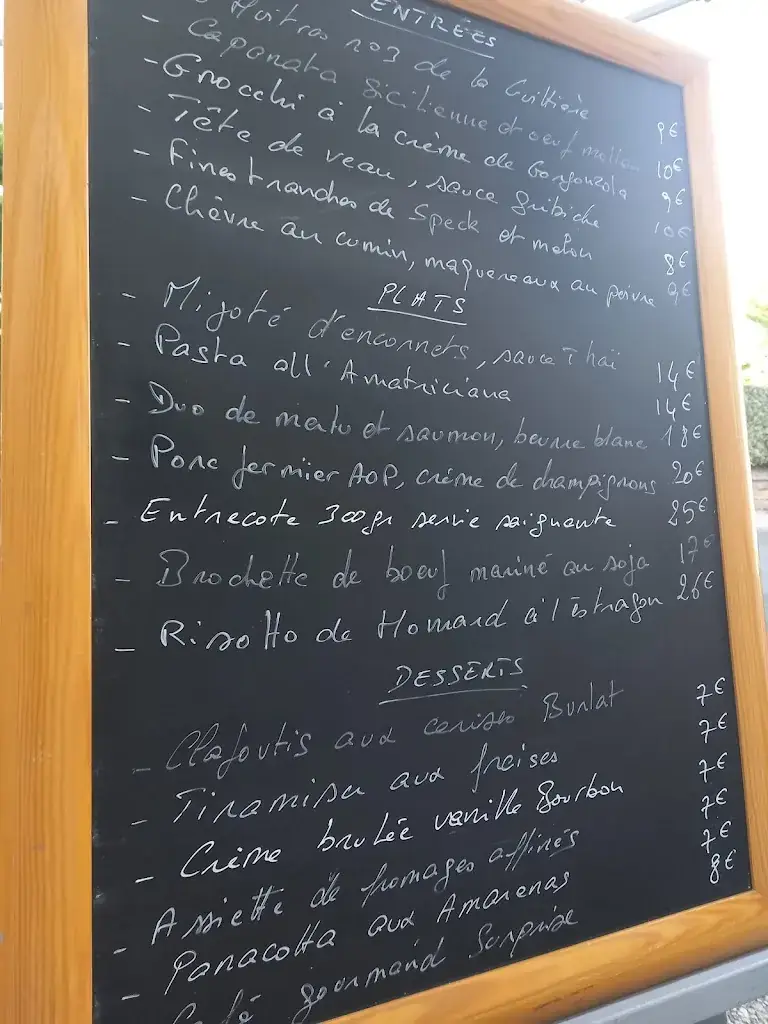 ENTRÉES
- Huitres n°3 de la Guittière 9€
- Caponata Sicilienne et oeuf mollet 10€
- Gnocchi à la crème de Gorgonzola 9€
- Tête de veau, sauce gribiche 10€
- Fines tranches de Speck et melon 8€
- Chèvre au cumin, maquereaux au poivre 9€
PLATS
- Mijoté d'encornets, sauce Thaï 14€
- Pasta all'Amatriciana 14€
- Duo de merlu et saumon, beurre blanc 18€
- Porc fermier AOP, crème de champignons 20€
- Entrecote 300gr servie saignante 25€
- Brochette de boeuf mariné au soja 17€
- Risotto de Homard à l'Estragon 26€
DESSERTS
- Clafoutis aux cerises Burlat 7€
- Tiramisu aux fraises 7€
- Crème brulée vanille Bourbon 7€
- Assiette de fromages affinés 7€
- Panacotta aux Amarenas 7€
Café gourmand Surprise 8€